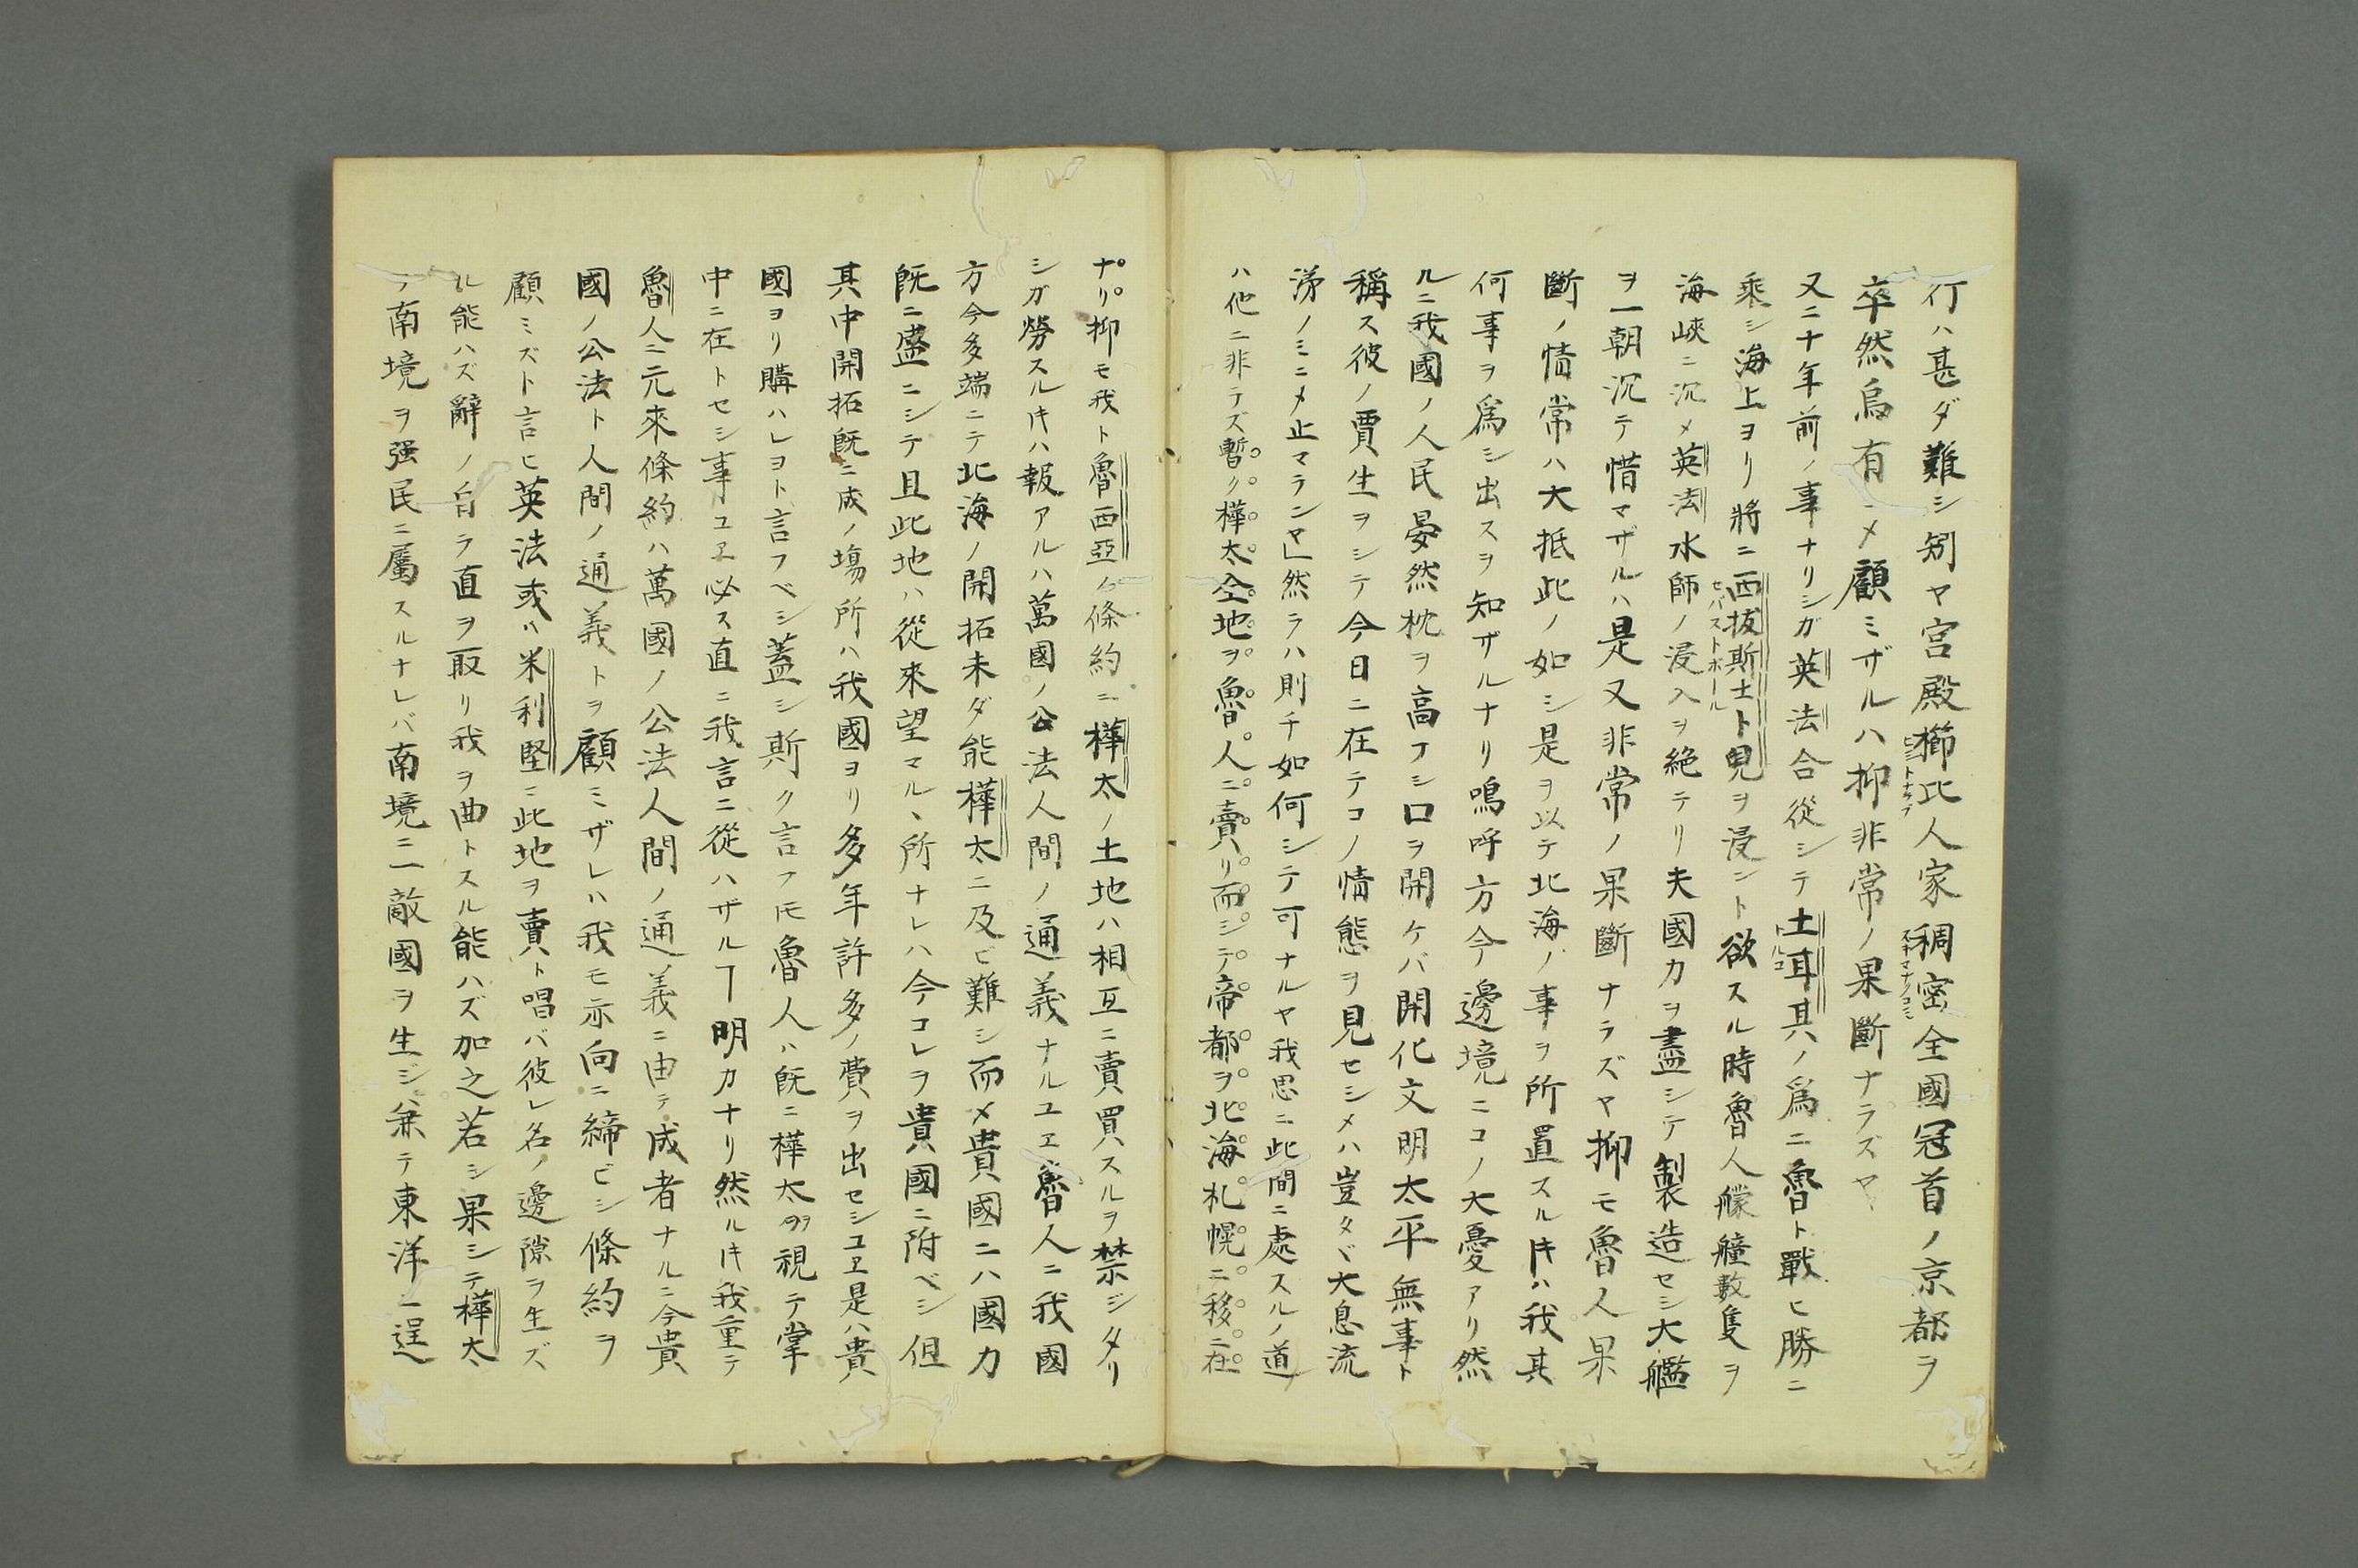 行ハ甚ダ難シ矧ヤ宮殿櫛比人家稠密全國冠首ノ京都ヲ
卒然烏有ニメ顧ミザルハ抑非常ノ果斷ナラズヤ
又二十年前ノ事ナリシガ英法合從シテ土耳其ノ爲ニ魯ト戰ヒ勝ニ
乘シ海上ヨリ將ニ西拔斯土ト皃ヲ浸ント欲スル時魯人艨艟數隻ヲ
海峽ニ沉メ英法水師ノ浸入ヲ絶テリ夫國力ヲ盡シテ製造セシ大艦
ヲ一朝沉テ惜マザルハ是又非常ノ果斷ナラズヤ抑モ魯人果
斷ノ情常ハ大抵此ノ如シ是ヲ以テ北海ノ事ヲ所置スルㇳキハ我其
何事ヲ爲シ出スヲ知ザルナリ鳴呼方今邊境ニコノ大憂アリ然
ルニ我國ノ人民晏然枕ヲ高フシ口ヲ開ケバ開化文明太平無事ト
稱ス彼ノ賈生ヲシテ今日ニ在テコノ情態ヲ見セシメハ豈タヾ大息流
涕ノミニメ止マランヤ」然ラハ則チ如何シテ可ナルヤ我思ニ此間ニ處スルノ道
ハ他ニ非ラズ暫ク樺太仝地ヲ魯人ニ賣リ而シテ帝都ヲ北海札幌ニ移ニ在
ナリ抑モ我ト魯西亞ノ條約ニ樺太ノ土地ハ相互ニ賣買スルヲ禁ジタリ
シガ勞スルㇳキハ報アルハ萬國ノ公法人間ノ通義ナルユヱ魯人ニ我國
方今多端ニテ北海ノ開拓未ダ能樺太ニ及ビ難シ而メ貴國ニハ國力
既ニ盛ニシテ且此地ハ從來望マルヽ所ナレハ今コレヲ貴國ニ附ベシ但
其中開拓既ニ成ノ塲所ハ我國ヨリ多年許多ノ費ヲ出セシユヱ是ハ貴
國ヨリ購ハレヨト言フベシ蓋シ斯ク言フㇳモ魯人ハ既ニ樺太ヲ視テ掌
中ニ在トセシ事ユヱ必ス直ニ我言ニ從ハザルヿ明カナリ然ルㇳキ我重テ
魯人ニ元來條約ハ萬國ノ公法人間ノ通義ニ由テ成者ナルニ今貴
國ノ公法ト人間ノ通義トヲ顧ミザレハ我モ示向ニ締ビシ條約ヲ
顧ミズト言ヒ英法或ハ米利堅ニ此地ヲ賣ト唱バ彼レ名ノ邊隙ヲ生ズ
ル能ハズ辭ノ自ラ直ヲ取リ我ヲ曲トスル能ハズ加之若シ果シテ樺太
ノ南境ヲ强民ニ屬スルナレバ南境ニ一敵國ヲ生ジ兼テ東洋ニ逞
ヒトナラブ
スキマナクコミ
トルコ
セバストポール